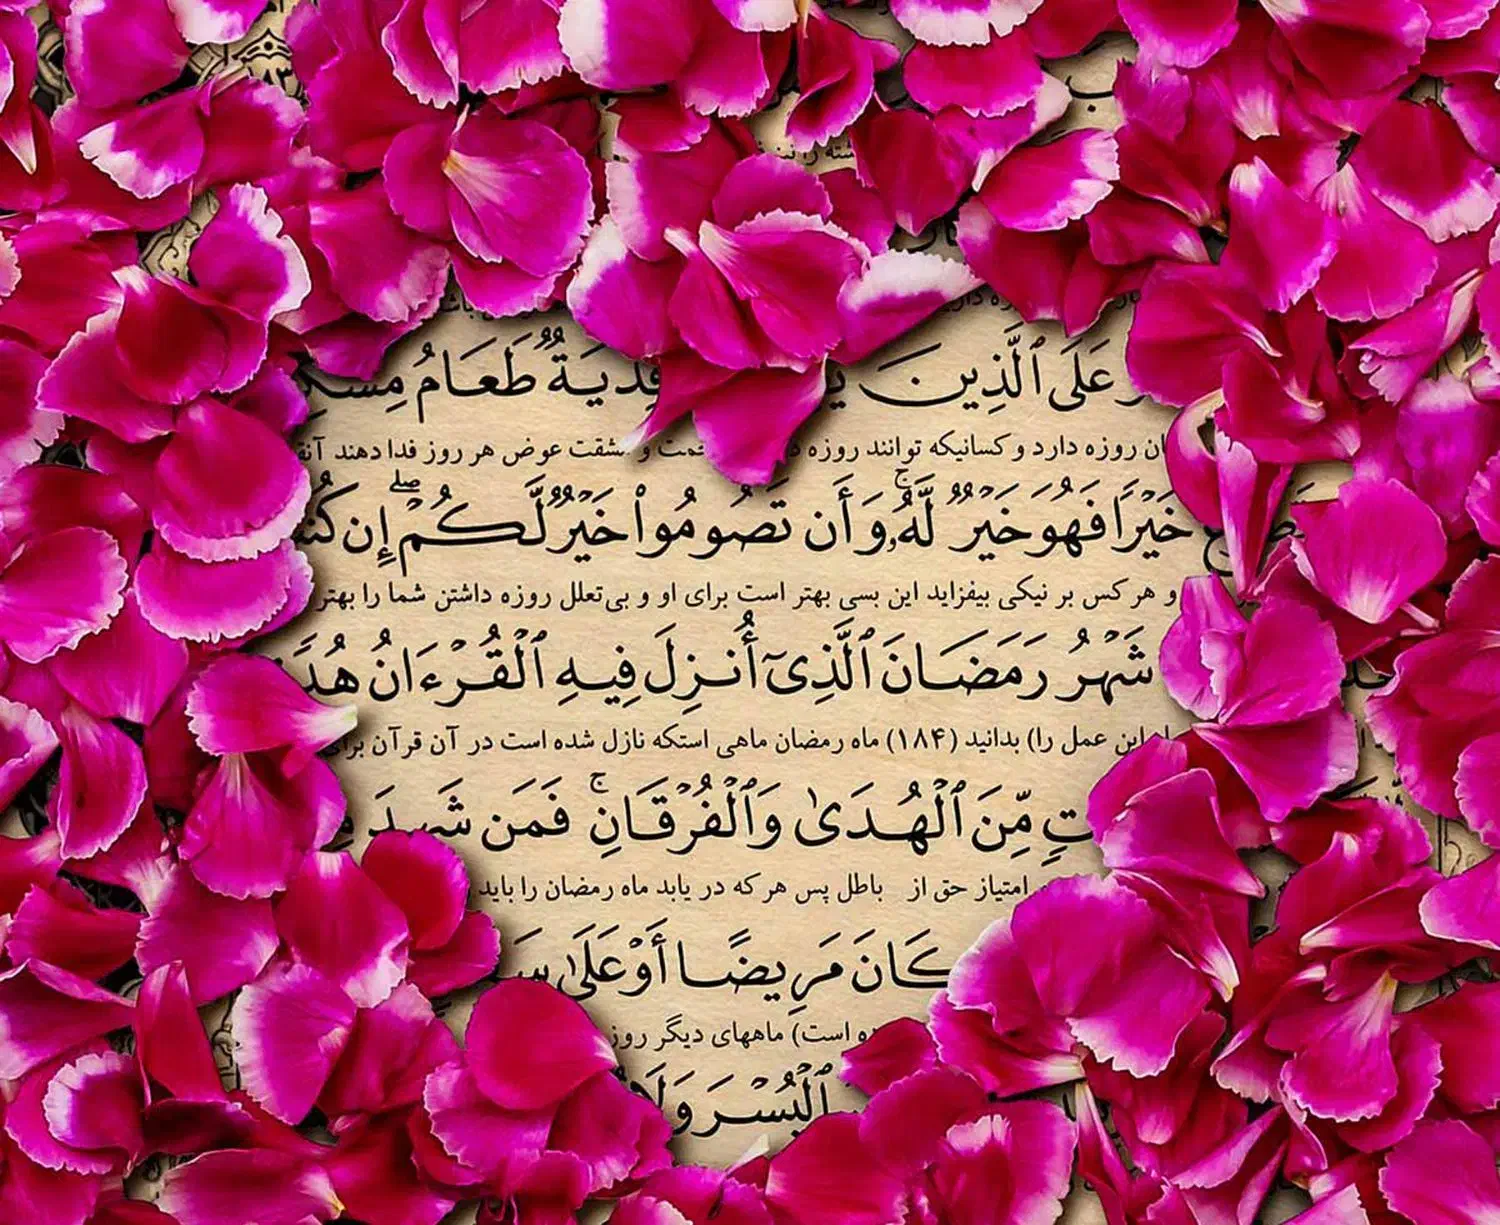 عَلَى ٱلَّذِينَ فِدۡيَةٌ طَعَامُ
روزه دارد و کسانیکه توانند روزه و مشقت عوض هر روز فدا دهند
خَيۡرًا فَهُوَ خَيۡرٌ لَّهُۥۚ وَأَن تَصُومُواْ خَيۡرٌ لَّكُمۡۖ إِن
و هر کس بر نیکی بیفزاید این بسی بهتر است برای او و بی‌تعلل روزه داشتن شما را بهتر
شَهۡرُ رَمَضَانَ ٱلَّذِيٓ أُنزِلَ فِيهِ ٱلۡقُرۡءَانُ هُدًى
این عمل را) بدانید (۱۸۴) ماه رمضان ماهی استکه نازل شده است در آن قرآن برای
مِّنَ ٱلۡهُدَىٰ وَٱلۡفُرۡقَانِۚ فَمَن شَهِدَ
امتیاز حق از باطل پس هر که در یابد ماه رمضان را باید
كَانَ مَرِيضًا أَوۡ عَلَىٰ
است) ماههای دیگر
ٱلۡيُسۡرَ وَلَا